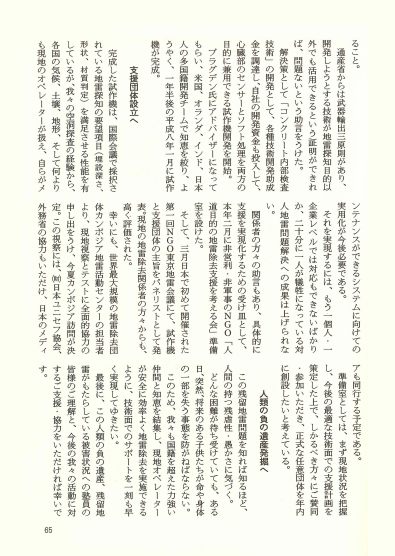 ること。
　通産省からは武器輸出三原則があり、
開発しようとする技術が地雷探知目的以
外でも活用できるという証明ができれ
ば、問題ないという助言をうけた。
　解決策として「コンクリート内部検査
技術」の開発として、各種技術開発助成
金を調達し、自社の開発資金も投入して、
心臓部のセンサーとソフト処理を両方の
目的に兼用できる試作機開発を開始。
　ブラグデン氏にアドバイザーになって
もらい、米国、オランダ、インド、日本
人の多国籍開発チームで知恵を絞り、よ
うやく、一年半後の平成八年一月に試作
機が完成。
支援団体設立へ
　完成した試作機は、国際会議で採択さ
れている地雷探知の要望項目（埋設深さ、
形状、材質判定）を満足させる性能を有
しているが、我々の空洞探査の経験から、
各国の気候、土壌、地形、そして何より
も現地のオペレーターが扱え、自らがメ
ンテナンスができるシステムに向けての
実用化が今後必要である。
　それを実現するには、もう一個人・一
企業レベルでは対応もできないばかり
か、二十分に一人が犠牲になっている対
人地雷問題解決への成果は上げられな
い。
　関係者の方々の助言もあり、具体的に
支援を実現化するための受け皿として、
本年二月に非営利・非軍事のNGO「人
道目的の地雷除去支援を考える会」準備
室を設けた。
　そして、三月日本で初めて開催された
第一回NGO東京地雷会議にて、試作機
と支援団体の主旨をパネリストとして発
表。現地の地雷除去関係者の方々からも、
高く評価された。
　幸いにも、世界最大規模の地雷除去団
体カンボジア地雷活動センターの担当者
より、現地視察とテストに全面的協力の
申し出をうけ、今夏カンボジア訪問が決
定。この視察には、㈶日本ユニセフ協会、
外務省の協力もいただけ、日本のメディ
アも同行する予定である。
　準備室としては、まず現地状況を把握
し、今後の最適な技術面での支援計画を
策定した上で、しかるべき方々にご賛同
・参加いただき、正式な任意団体を年内
に創設したいと考えている。
人類の負の遺産発掘へ
　この残留地雷問題を知れば知るほど、
人間の持つ残虐性・愚かさに気づく。
　どんな困難が待ち受けていても、ある
日、突然、将来のある子供たちが命や身体
の一部を失う事態を防がねばならない。
　このため、我々も国籍を超えた力強い
仲間と知恵を結集し、現地オペレーター
が安全に効率よく地雷除去を実施できる
ように、技術面でのサポートを一刻も早
く実現してゆきたい。
　最後に、この人類の負の遺産、残留地
雷がもたらしている被害状況への塾員の
皆様のご理解と、今後の我々の活動に対
するご支援・協力をいただければ幸いで
65